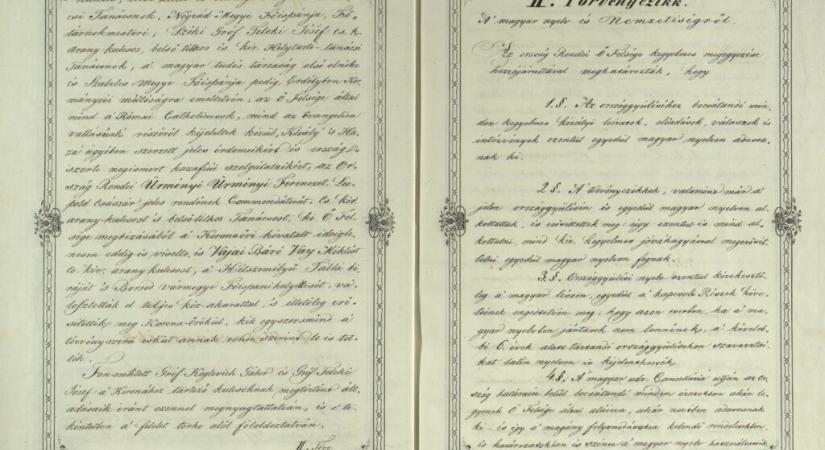 csi Tanácsnok, Nógrád Megye Főispánja, Fő-
tárnokmester; Széki Gróf Teleki Jósef cs. k.
arany kulcsos, belső titkos és kir. Helytartó-tanácsi
Tanácsnok, a' magyar tudós társaság első elnöke
és Szabolcs Megye Főispánja pedig Erdélyben Kor-
mányzói méltóságra emeltetvén; az Ő Felsége által
mind a Római Catholicusok, mind az Evangelica
vallásúak részéről kijelöltek közűl, Király 's Ha-
za ügyében szerzett jeles érdemeikért és ország-
szerte megismert hazafiúi szolgálataikért, az Or-
szág Rendei Ürményi Ürményi Ferenczet, Leo-
pold Császár jeles rendének Commendátorát, Cs. kir.
arany-kulcsost és belső titkos Tanácsost, ki Ő Fel-
sége megbizásából a' Koronaőri hivatalt ideigle-
nesen eddig is viselte, és Vajai Báró Vay Miklóst
Cs. kir. arany kulcsost, a' Hétszemélyű Tábla bi-
ráját és Borsod vármegye Főispáni helytartóját, vá-
lasztották el teljes köz-akarattal, 's illetőleg erő-
sitették meg Korona-Őrökűl, kik egyszersmind a'
törvényszerű esküt annak rende szerint le is tet-
ték.
Fenemlitett Gróf Keglevich Gábor és Gróf Teleki
Jósef a' Koronához tartozó kulcsoknak megtörtént áta-
dásaik iránt ezennel megnyugtattatván, is e' te-
kintetben a' felelet terhe alól föloldoztatván.
II. Törv.
II. Törvényczikk.
A' magyar nyelv és Nemzetiségről.
Az ország Rendei Ő Felsége kegyelmes megegyezése
hozzájárultával meghatározták, hogy
1. §. Az országgyűléshez bocsátandó min-
den kegyelmes királyi leirások, előadások, válaszok és
intézvények ezentúl egyedűl magyar nyelven adassa-
nak ki.
2. §. A törvényczikkek, valamint már a'
jelen országgyűlésen is egyedűl magyar nyelven al-
kottattak, és czikkeztettek meg: úgy ezentúl is mind al-
kottatni, mind kir. kegyelmes jóváhagyással megerősit-
tetni egyedűl magyar nyelven fognak.
3. §. Országgyűlési nyelv ezentúl kirekesztő-
leg a' magyar lészen, egyedűl a' kapcsolt Részek köve-
teinek engedtetvén meg: hogy azon esetben, ha a' ma-
gyar nyelvben jártasok nem lennének, a' közeleb-
bi 6. évek alatt tartandó országgyűléseken szavazatai-
kat latin nyelven is kijelenthessék.
4. §. A' magyar udv. Cancellária útján az or-
szág határain belűl bocsátandó minden iratokban akár te-
gyenek Ő Felsége által aláirva, akár nevében adassanak
ki – és igy a' magány folyamodásokra kelendő rendeletekben,